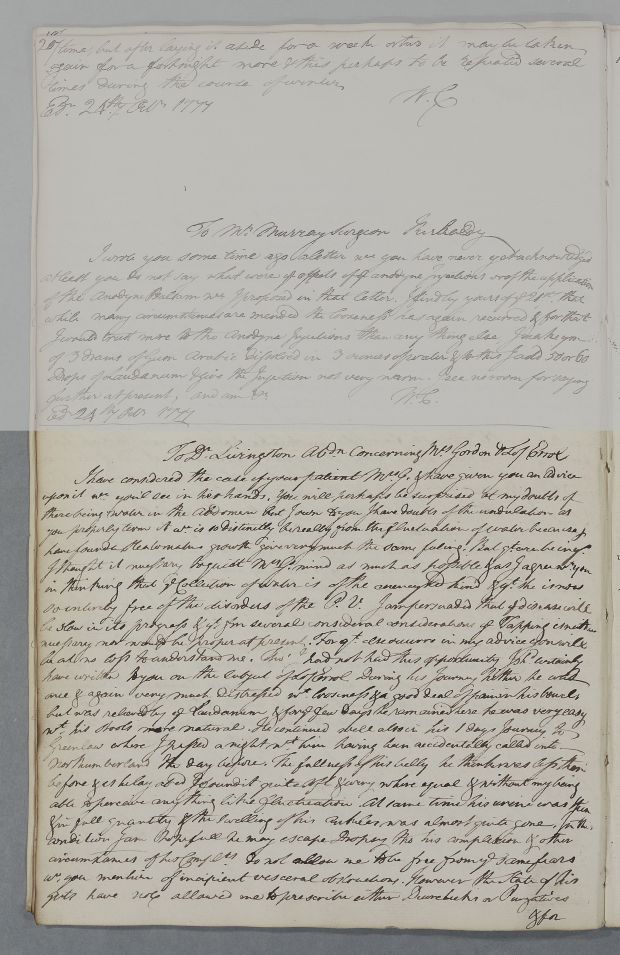 207
time, but after laying it aside for a week or two it may be taken
again for a fortnight more & this perhaps to be repeated several
times during the course of winter.
Edr. 24th Febr. 1777 W. C.
To Mr. Murray Surgeon Kirkaldy
I wrote you some time ago a letter wc you have never yet acknowledged
at least you do not say what were ye effects of ye anodyne Injections or of the application
of the Anodyne Balsam wc I proposed in that letter. I find by yours of ye 21st. that
while many circumstances are mended the looseness has again recurred & for that
I would trust more to the Anodyne Injections than any thing else I make ym
of 3 drams of Gum Arabic dissolved in 3 ounces of water & to this I add 50 or 60
drops of Laudanum & give the Injection not very warm. I see no room for saying
further at present, and am &c W. C.
Edr 24th Febr 1777
To Dr. Livingston Abdn Concerning Mrs Gordon & Lord Errol
I have considered the case of your patient Mrs G. & have given you an advice
upon it wc you'll see in her hands. You will perhaps be surprised at my doubts of
there being water in the abdomen but I own to you I have doubts of the undulation as
you properly term it wc is so distinctly to really from the fluctuation of water because I
have found Steatomatous growth give very much the same feeling. But of are being
I thought it necessary to quiet Mrs G. mind as much as possible & as I agree wt you
in thinking that ye Collection of water is of the encysted kind & yt she is now
so entirely free of the disorders of the P. V. I am persuaded that ye disease will
be slow in its progress & yt from several considerations Tapping is neither
necessary nor would be proper at present. For ye rest in my advice you will
be at no loss to understand me. had not had this opportunity I shd certainly
have written to you on the subject of Ld Errol. During his Journey hither he was
once & again very much distressed wt looseness & a good deal of pain in his bowels
but was relieved by ye Laudanum & for ye few days he remained here he was very easy
wt his stools more natural. He continued well also in his 1st days Journey to
Greenlaw where I passed a night wt him having been accidentally called into
Northumberland the day before. The fullness of his belly he thinks was less than
before & as he lay abed I found it quite soft & every where equal & without my being
able to perceive any thing like fluctuation. At same time his urine was then
& in full quantity & the swelling of his Ancles was almost quite gone. In this
condition I am hopefull he may escape Dropsy tho his complexion & other
circumstances of his Complts do not allow me to be free from ye same fears
wc you mention of incipient visceral obstructions. However the State of his
guts have not allowed me to prescribe either Diuretics or Purgatives
& for